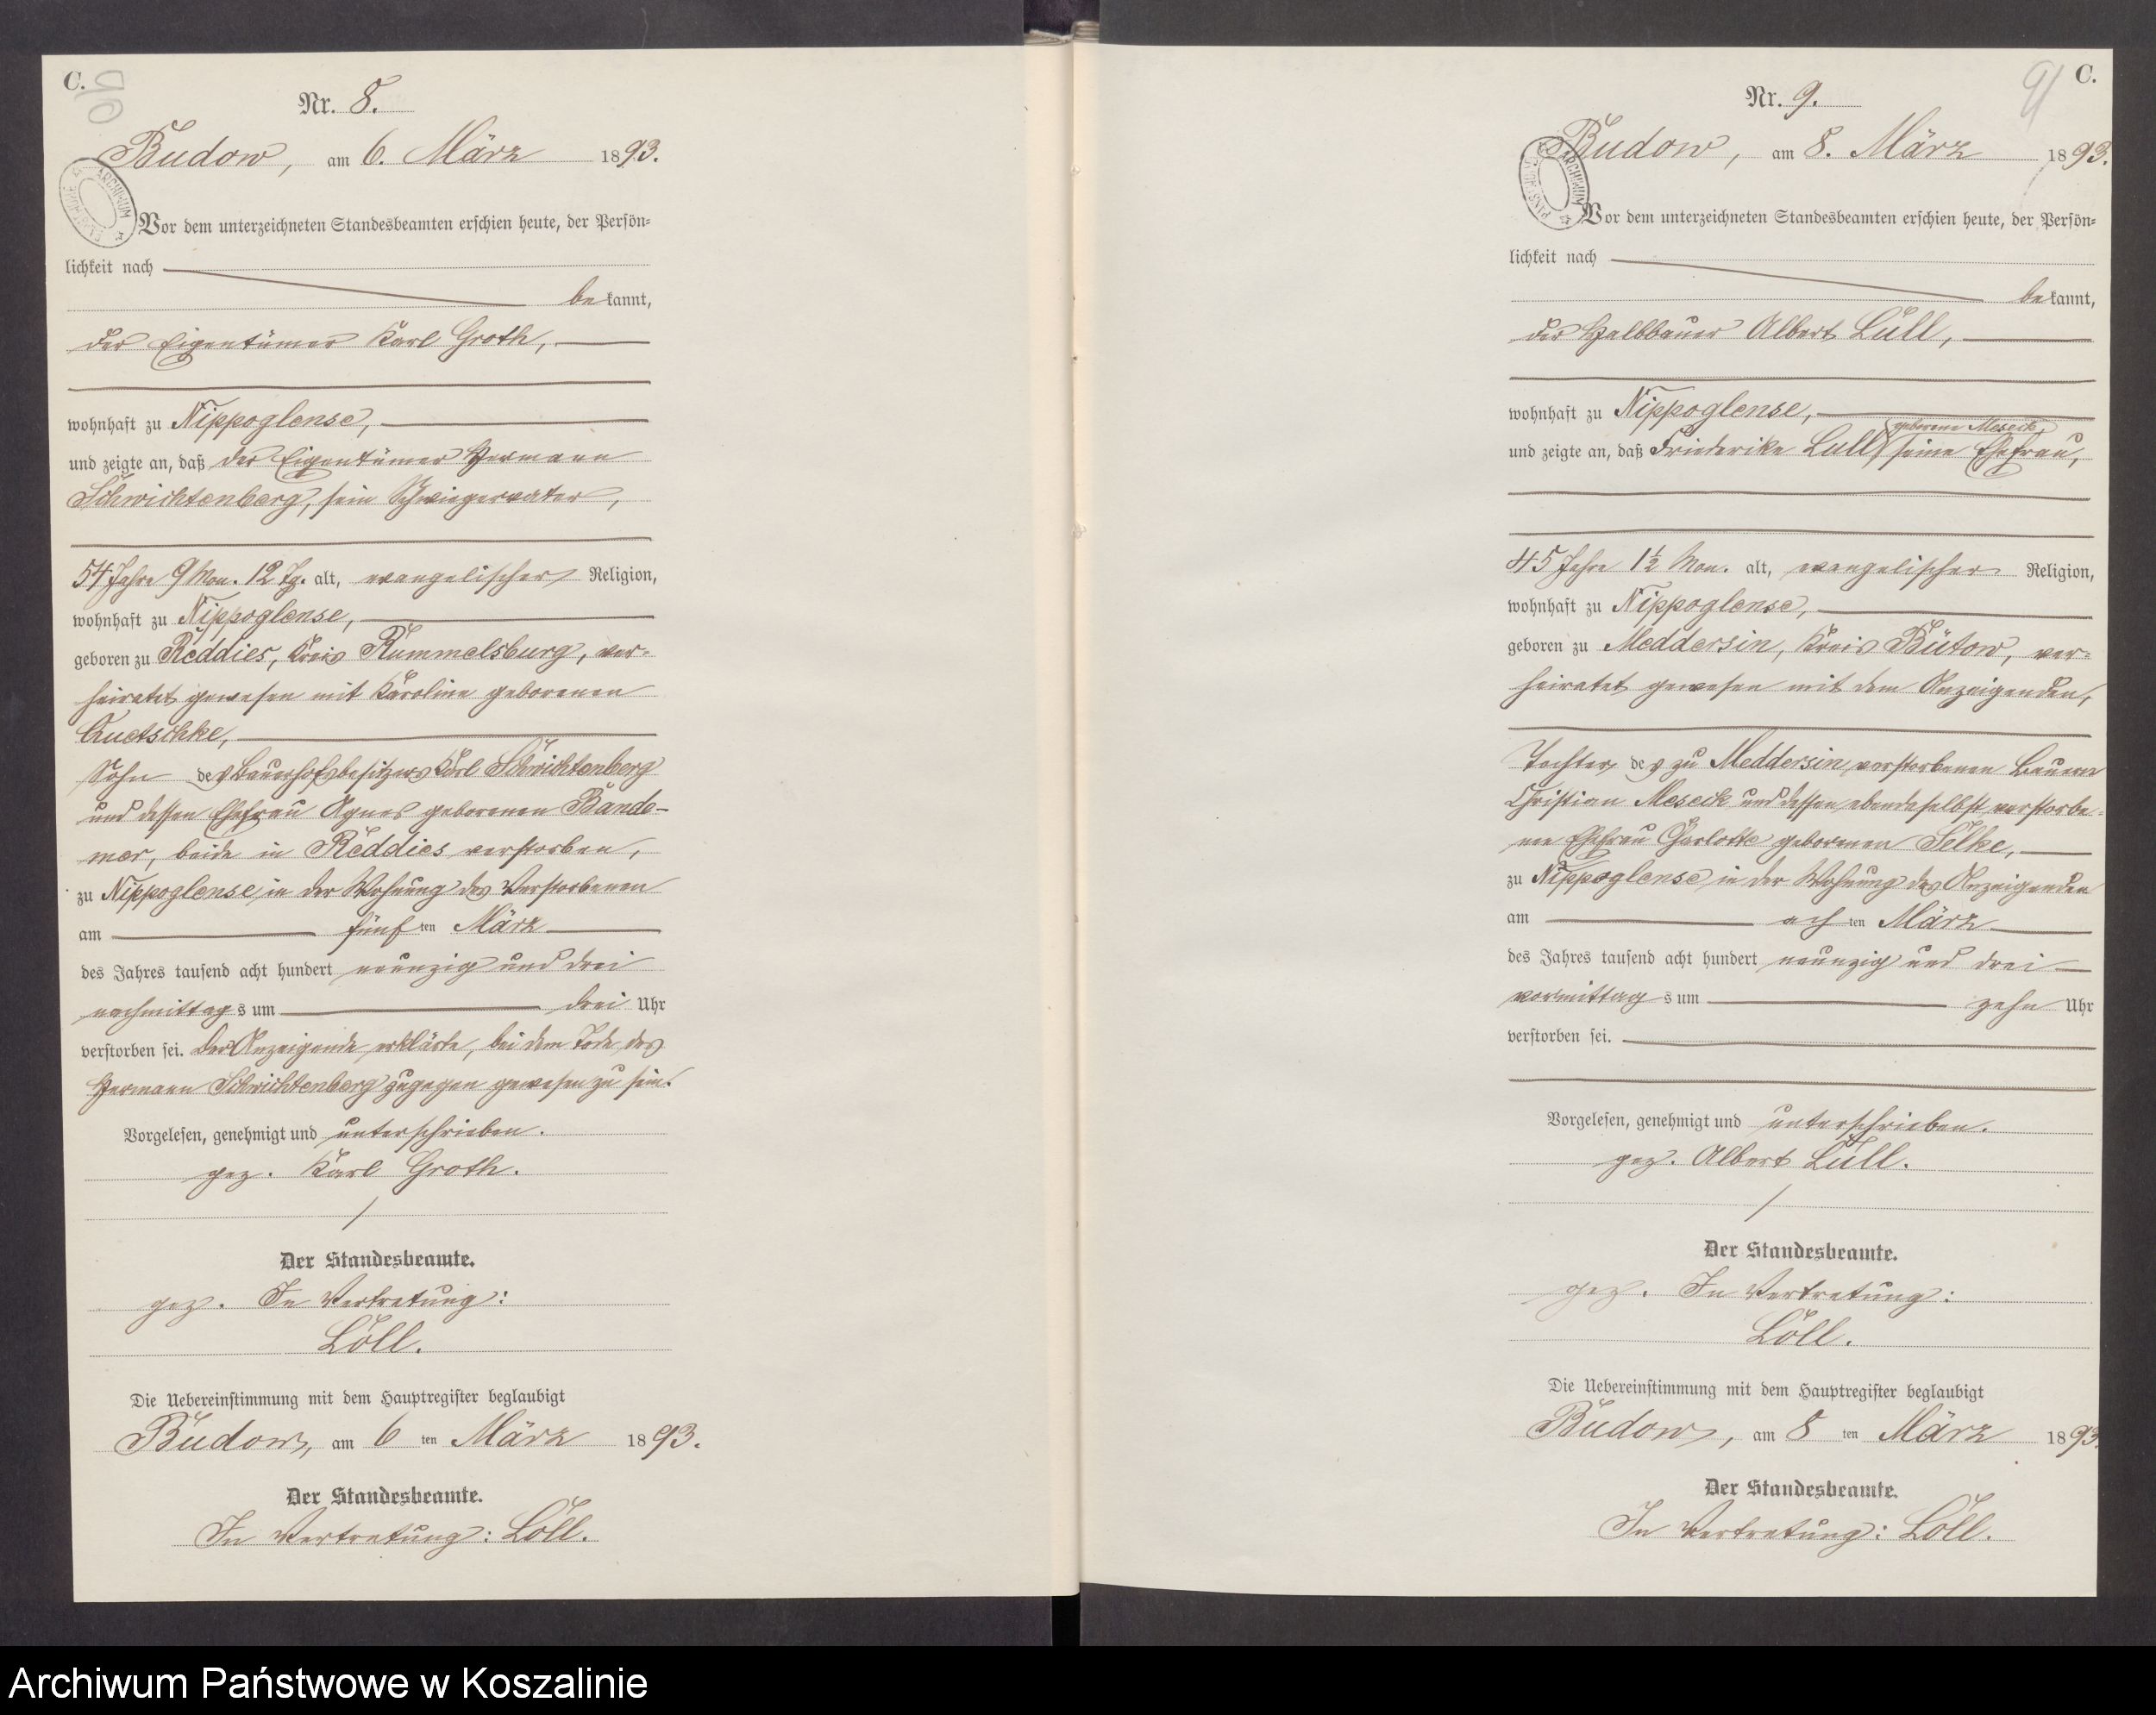 C.
90
Nr. 8.
Budow, am 6. März 1893.
Vor dem unterzeichneten Standesbeamten erschien heute, der Persön-
lichkeit nach
bekannt,
der Eigentümer Karl Groth,
wohnhaft zu Nippoglense,
und zeigte an, daß der Eigentümer Hermann
Schwichtenberg, sein Schwiegervater,
54 Jahre 9 Mon. 12 Tg. alt, evangelischer Religion,
wohnhaft zu Nippoglense,
geboren zu Reddies, Kreis Rummelsburg, ver-
heiratet gewesen mit Karoline geborenen
Quetschke,
Sohn des Bauerhofsbesitzers Karl Schwichtenberg
und dessen Ehefrau Agnes geborenen Bande-
mer, beide in Reddies verstorben,
zu Nippoglense, in der Wohnung des Verstorbenen
am fünften März
des Jahres tausend acht hundert neunzig und drei
nachmittags um drei Uhr
verstorben sei. Der Anzeigende erklärte, bei dem Tode des
Hermann Schwichtenberg zugegen gewesen zu sein.
Vorgelesen, genehmigt und unterschrieben.
gez. Karl Groth.
Der Standesbeamte.
gez. In Vertretung:
Löll.
Die Uebereinstimmung mit dem Hauptregister beglaubigt
Budow, am 6 ten März 1893.
Der Standesbeamte.
In Vertretung: Löll.
C.
91
Nr. 9.
Budow, am 8. März 1893.
Vor dem unterzeichneten Standesbeamten erschien heute, der Persön-
lichkeit nach
bekannt,
der Halbbauer Albert Lüll,
wohnhaft zu Nippoglense,
geborene Meseck
und zeigte an, daß Friederike Lull, seine Ehefrau,
45 Jahre 1½ Mon. alt, evangelischer Religion,
wohnhaft zu Nippoglense,
geboren zu Meddersin, Kreis Bütow, ver-
heiratet gewesen mit dem Anzeigenden,
Tochter des zu Meddersin verstorbenen Bauern
Christian Meseck und dessen ebendaselbst verstorbe-
nen Ehefrau Charlotte geborenen Selke,
zu Nippoglense, in der Wohnung des Anzeigenden
am achten März
des Jahres tausend acht hundert neunzig und drei
vormittags um zehn Uhr
verstorben sei.
Vorgelesen, genehmigt und unterschrieben.
gez. Albert Lüll.
Der Standesbeamte.
gez. In Vertretung:
Löll.
Die Uebereinstimmung mit dem Hauptregister beglaubigt
Budow, am 8 ten März 1893.
Der Standesbeamte.
In Vertretung: Löll.
Archiwum Państwowe w Koszalinie